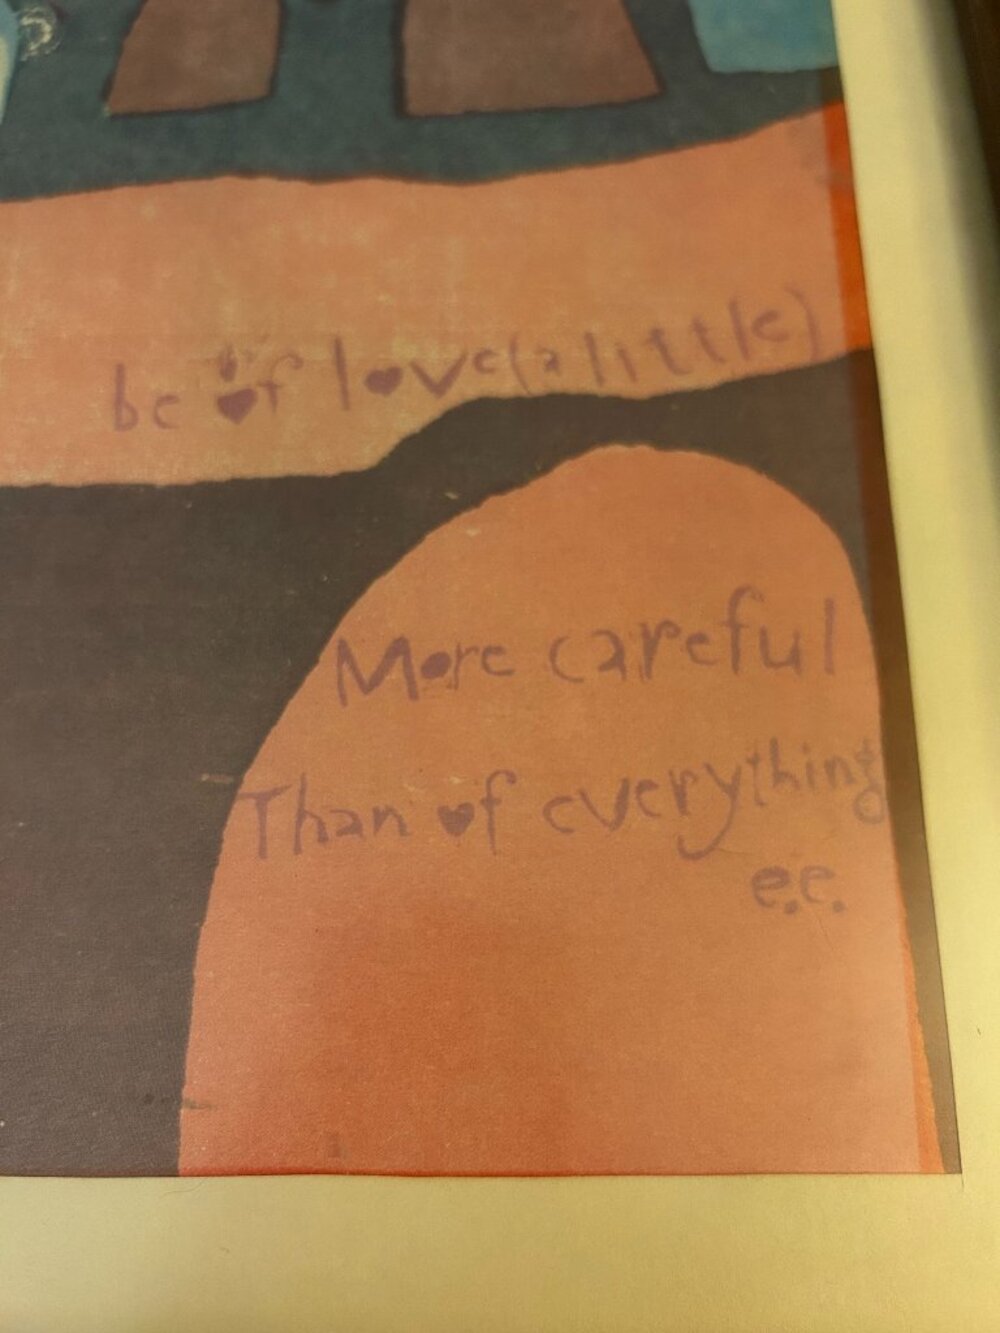 be of love(a little)
More careful
Than of everything
e.e.